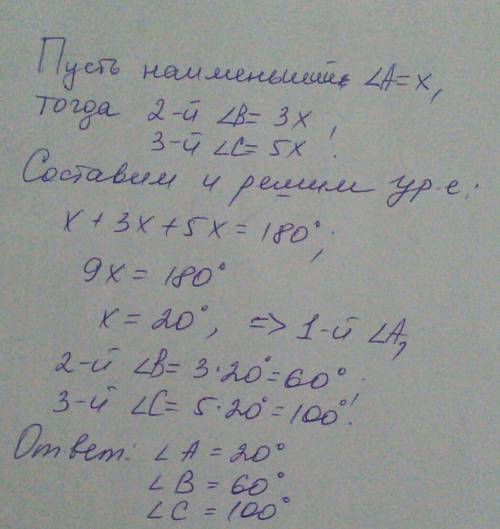 Пусть наименьший ∠A=x,
тогда 2-й ∠B= 3x,
3-й ∠C= 5x.
Составим и решим ур-е:
x + 3x + 5x = 180°;
9x = 180°
x = 20°, => 1-й ∠A,
2-й ∠B= 3·20°=60°;
3-й ∠C= 5·20°=100°.
Ответ: ∠A = 20°
∠B = 60°
∠C = 100°